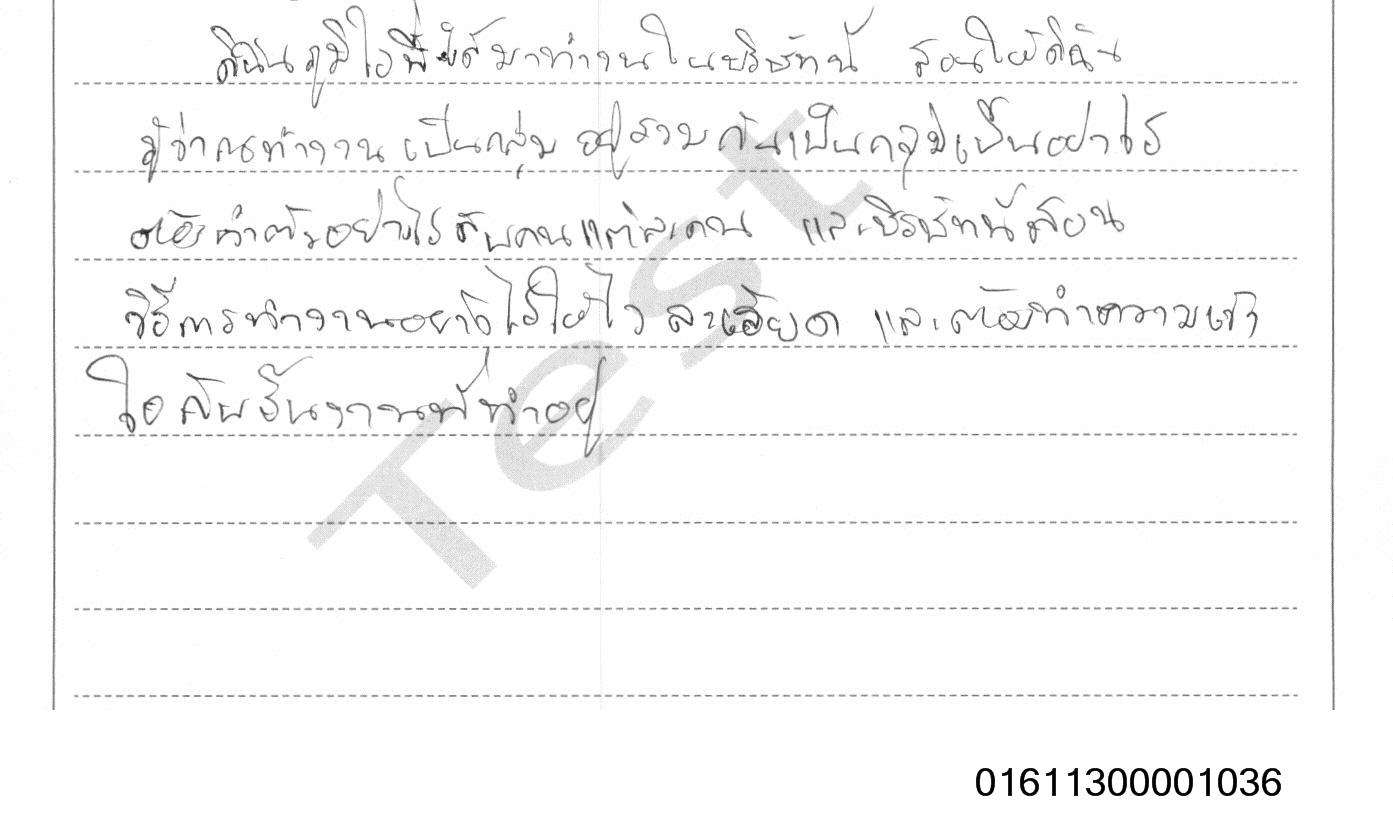 ดิฉันภูมิใจที่ได้มาทำงานในบริษัทนี้ สอนให้ดิฉัน
รู้ว่าการทำงานเป็นกลุ่ม อยู่รวมกันเป็นกลุ่มเป็นอย่างไร
ต้องทำตัวอย่างไรกับคนแต่ละคน และบริษัทนี้สอน
วิธีการทำงานอย่างไรให้ไว ละเอียด และต้องทำความเข้า
ใจกับชิ้นงานที่ทำอยู่
Test
01611300001036